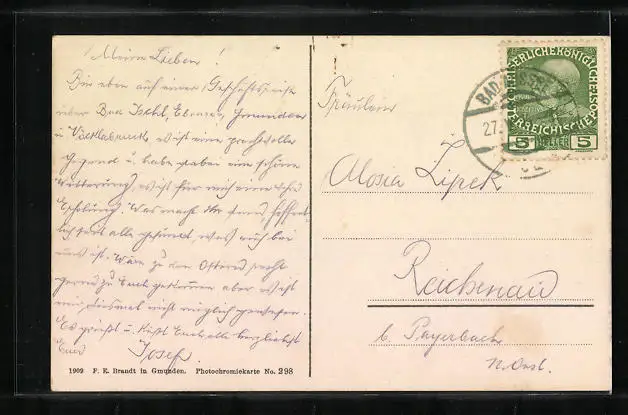 Meine Lieben!
Bin eben auf einer Geschäftsreise
über Bad Ischl, Ebensee, Gmunden
u Vöcklabruck, es ist eine prachtvolle
Gegend u. habe dabei eine schöne
Witterung, es ist für mich eine
Erholung. Was macht Ihr
seid alle gesund, was auch bei
uns ist. Wäre zu den Ostern
gerne zu Euch gekommen aber es ist
mir diesmal nicht möglich gewesen.
Es grüßt u. küßt Euch alle herzlichst
Euer Josef
1909 F. E. Brandt in Gmunden. Photochromiekarte No. 298
Fräulein
Aloisia Lipek
Reichenau
b. Payerbach
N. Öst.
KAISERLICHE KÖNIGLICHE
ÖSTERREICHISCHE
5 HELLER 5
BAD
27.